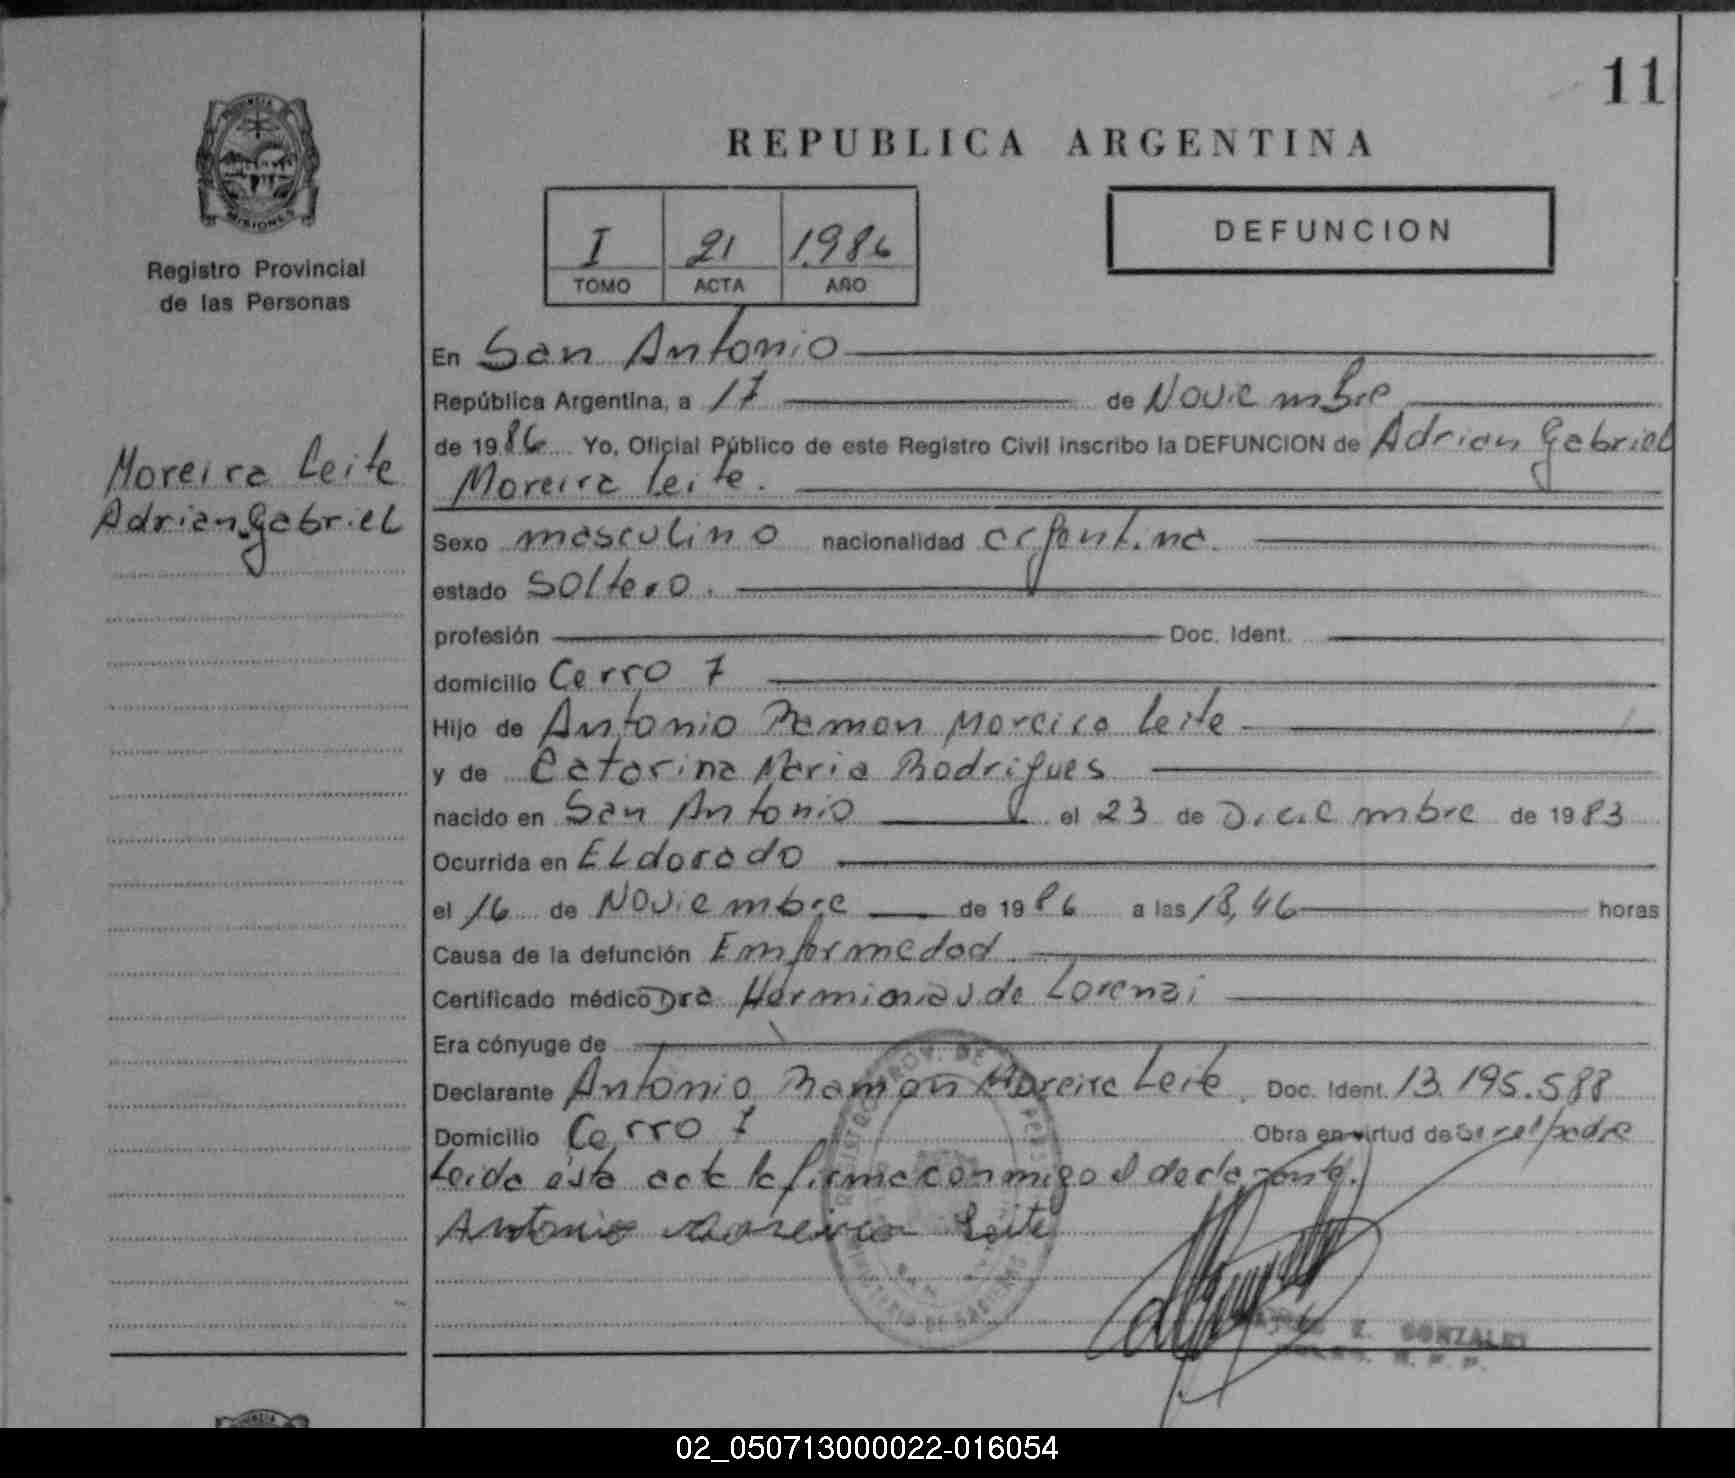 11
REPUBLICA ARGENTINA
PROVINCIA
MISIONES
Registro Provincial
de las Personas
I 21 1.986
TOMO ACTA AÑO
DEFUNCION
Moreira Leite
Adrian Gabriel
En San Antonio
República Argentina, a 17 de Noviembre
de 1986 Yo, Oficial Público de este Registro Civil inscribo la DEFUNCION de Adrian Gabriel
Moreira Leite.
Sexo masculino nacionalidad argentina.
estado soltero.
profesión Doc. Ident.
domicilio Cerro 7
Hijo de Antonio Ramon Moreira Leite
y de Catarina Maria Rodrigues
nacido en San Antonio el 23 de Diciembre de 1983
Ocurrida en ELdorado
el 16 de Noviembre de 1986 a las 18,46 horas
Causa de la defunción Emformedad
Certificado médico Dra de Lorenzi
Era cónyuge de
Declarante Antonio Ramon Moreira Leite. Doc. Ident. 13.195.588
Domicilio Cerro 7 Obra en virtud de Ser el padre
Leida ésta acta la firma conmigo el declarante.
Antonio Moreira Leite
REGISTRO PROV. DE
MINISTERIO DE GOBIERNO
E. GONZALEZ
R. P. P.
02_050713000022-016054